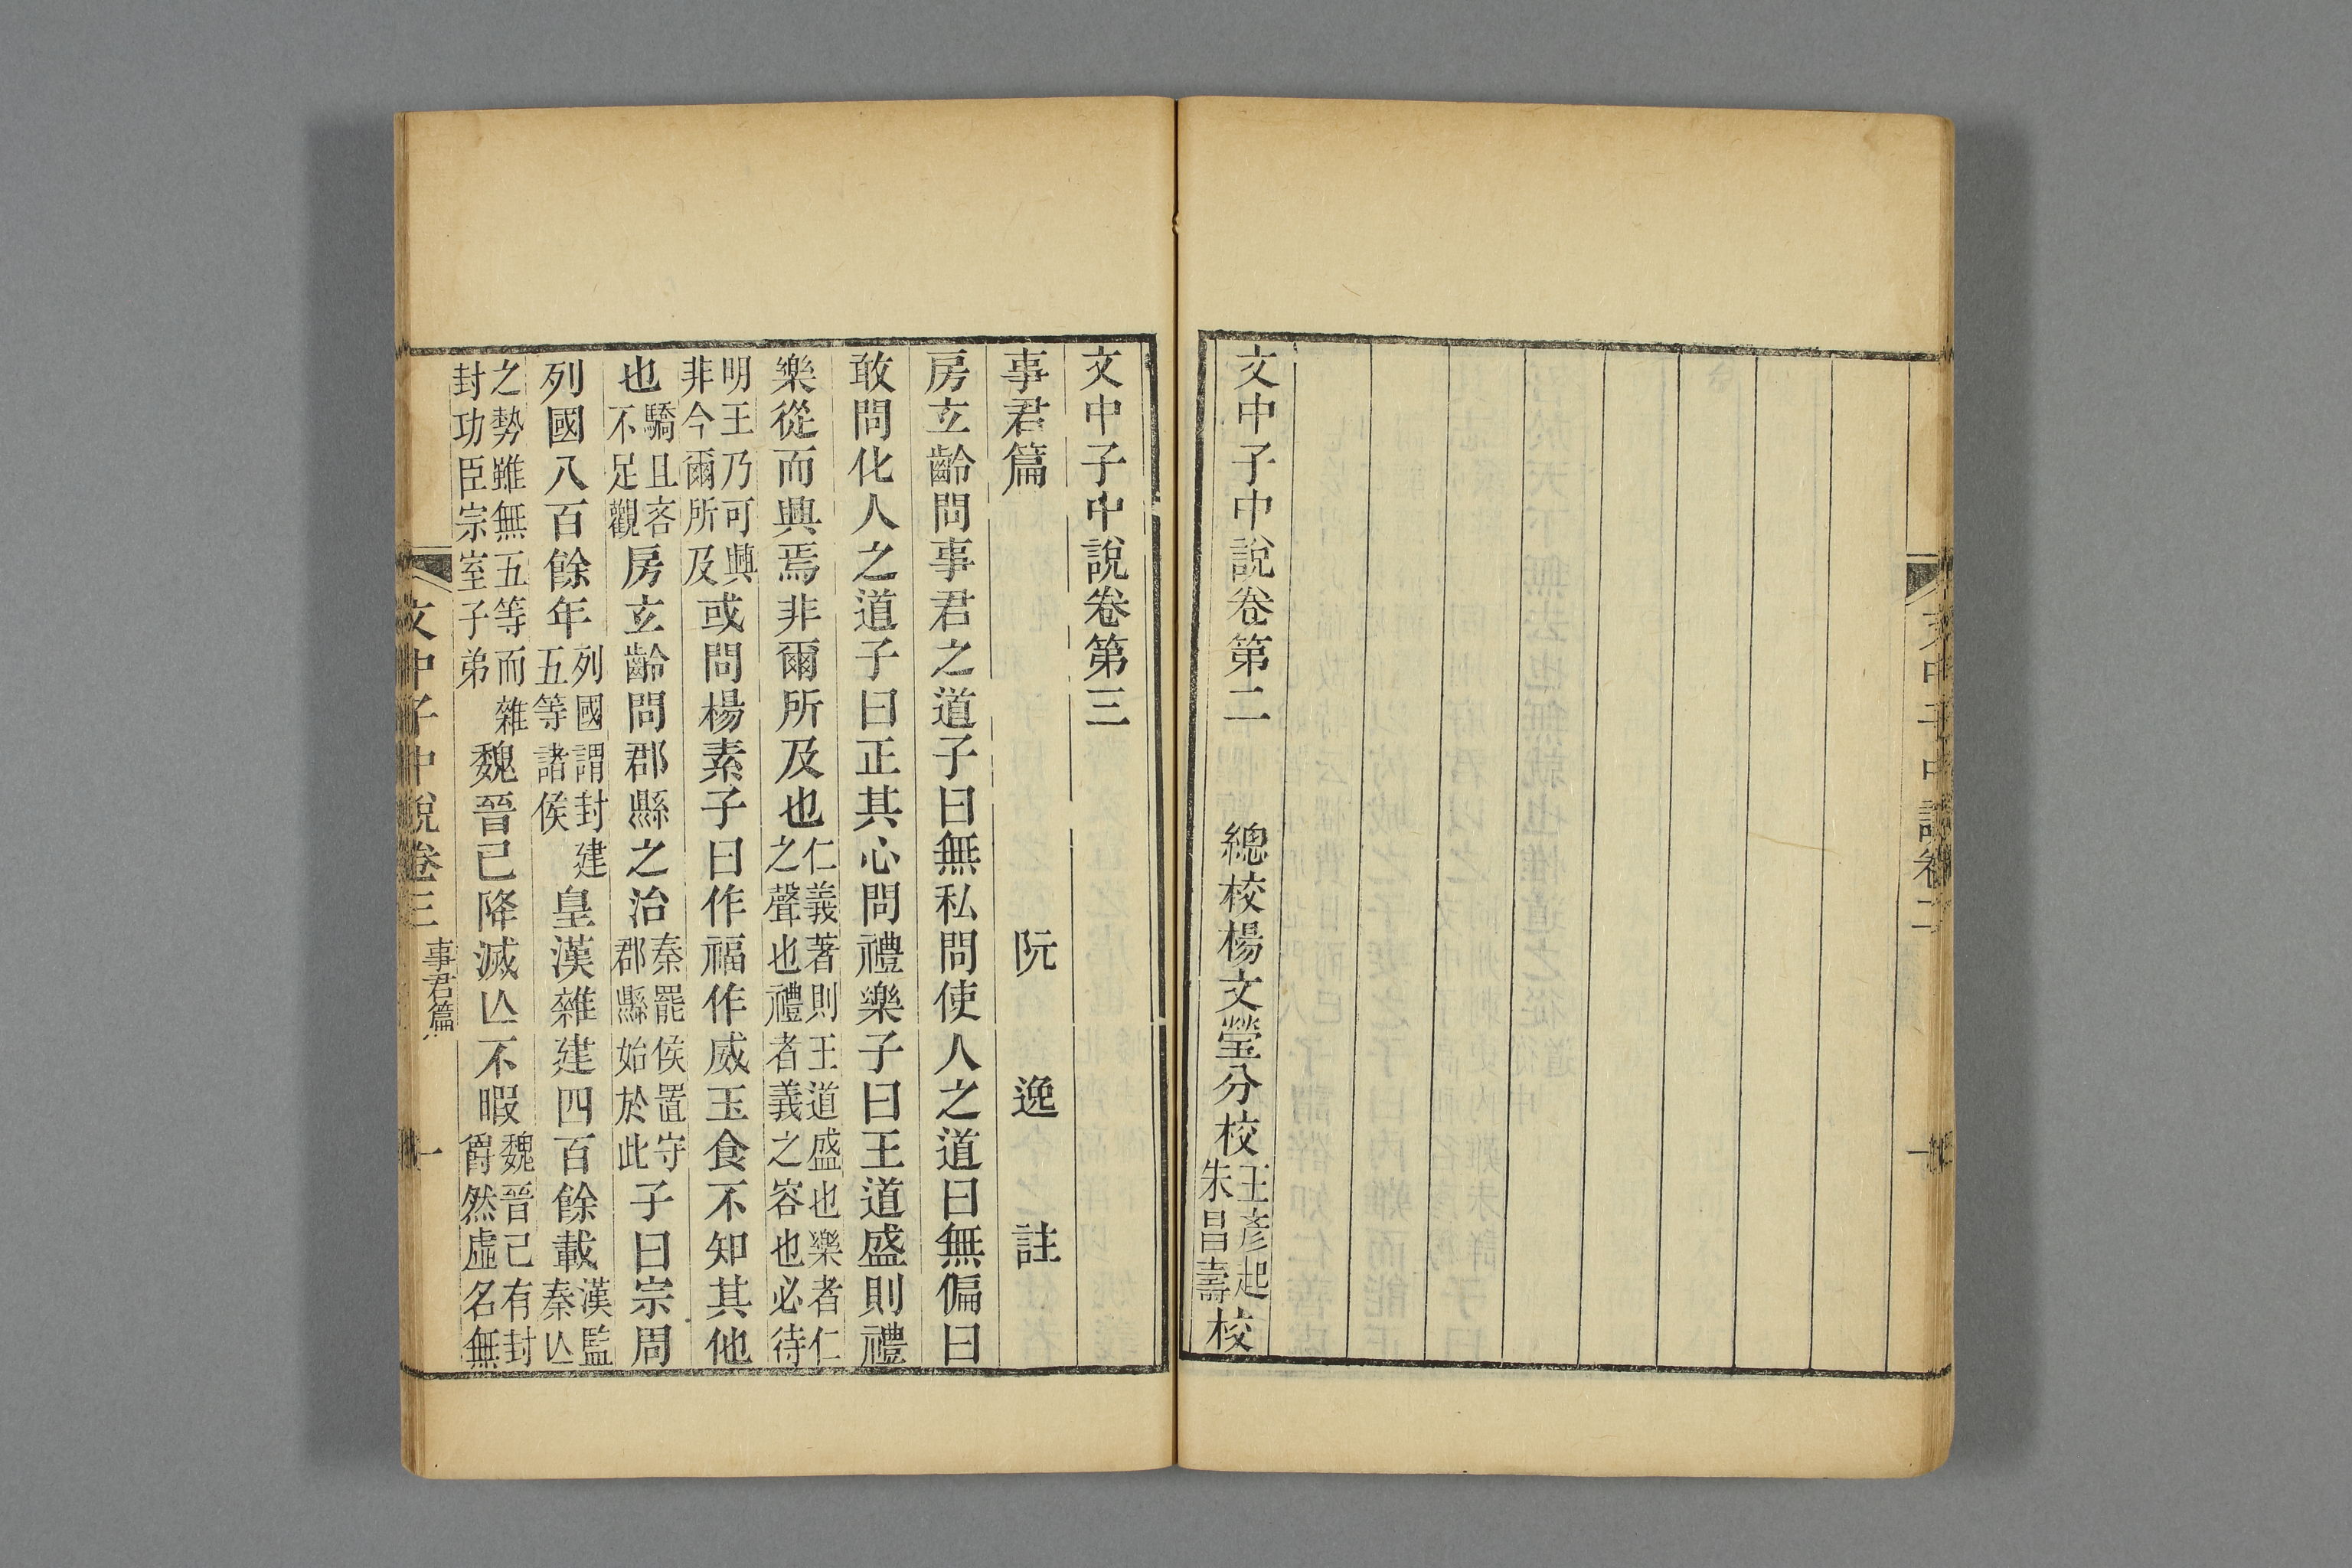 文中子中說卷二
一
文中子中說卷第二　總校楊文瑩分校王彥起朱昌壽校
文中子中說卷第三
事君篇　阮　逸　註
房玄齡問事君之道子曰無私問使人之道曰無偏曰
敢問化人之道子曰正其心問禮樂子曰王道盛則禮
樂從而興焉非爾所及也仁義著則王道盛也樂者仁之聲也禮者義之容也必待
明王乃可興非今爾所及或問楊素子曰作福作威玉食不知其他
也驕且吝不足觀房玄齡問郡縣之治秦罷侯置守郡縣始於此子曰宗周
列國八百餘年列國謂封建五等諸侯皇漢雜建四百餘載漢監秦亾
之勢雖無五等而雜封功臣宗室子弟魏晉已降滅亾不暇魏晉已有封爵然虛名無
文中子中說卷三　事君篇
一